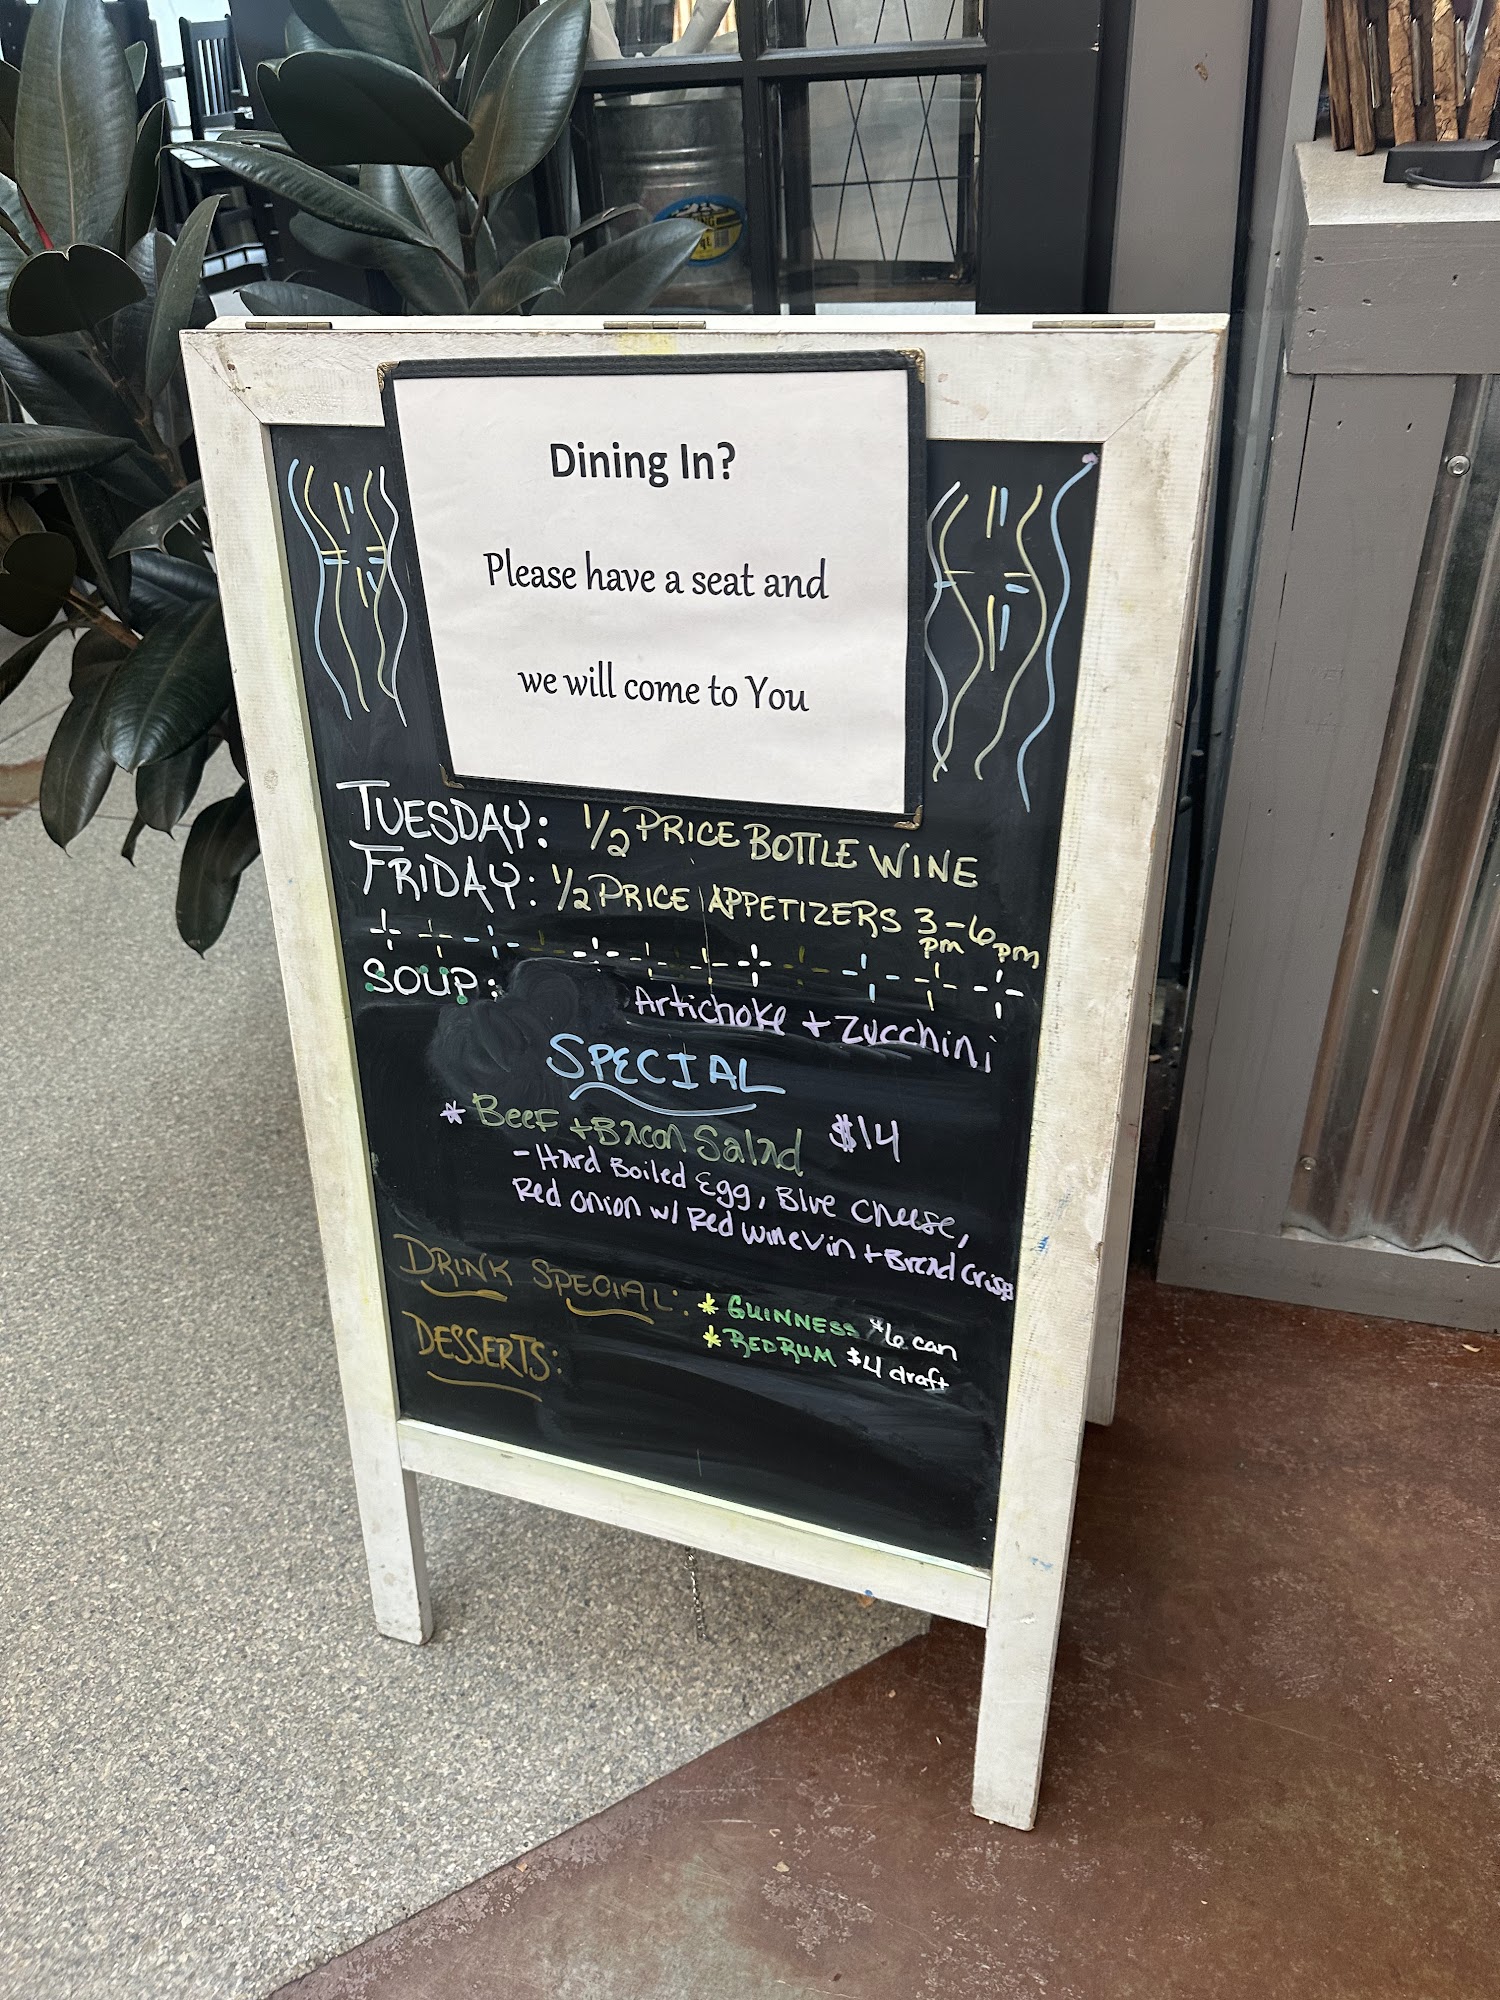 Dining In?
Please have a seat and
we will come to You
TUESDAY: 1/2 PRICE BOTTLE WINE
FRIDAY: 1/2 PRICE APPETIZERS 3pm-6pm
SOUP: Artichoke + Zucchini
SPECIAL
* Beef + Bacon Salad $14
- Hard Boiled Egg, Blue Cheese,
Red Onion w/ Red Wine Vin + Bread Crisps
DRINK SPECIAL: * GUINNESS $6 can
* REDRUM $4 draft
DESSERTS: